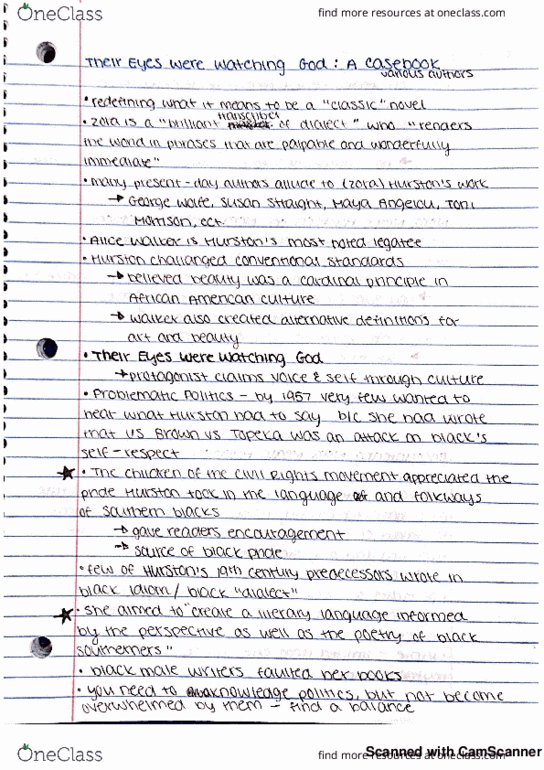 OneClass
find more resources at oneclass.com
Their Eyes Were Watching God : A Casebook
various authors
• redefining what it means to be a "classic" novel
transcribes
• Zora is a "brilliant of dialect" who "renders
the world in phrases that are palpable and wonderfully
immediate"
• many present-day authors allude to (Zora) Hurston's work
→ George Wolfe, Susan Straight, Maya Angelou, Toni
Morrison, ect.
• Alice Walker is Hurston's most noted legatee
• Hurston challanged conventional standards
→ believed beauty was a cardinal principle in
African American culture
→ Walker also created alternative definitions for
art and beauty
• Their Eyes Were Watching God
→ protagonist claims voice & self through culture
• Problematic Politics - by 1957 very few wanted to
hear what Hurston had to say b/c she had wrote
that US Brown vs Topeka was an attack on black's
self-respect
★ • The children of the Civil Rights movement appreciated the
pride Hurston took in the language and folkways
of southern blacks
→ gave readers encouragement
→ source of black pride
• few of Hurston's 19th century predecessors wrote in
black idiom / black "dialect"
★ • she aimed to "create a literary language informed
by the perspective as well as the poetry of black
southerners"
• black male writers faulted her books
• you need to aknowledge politics, but not become
overwhelmed by them - find a balance
OneClass
find more resources at oneclass.com
Scanned with CamScanner